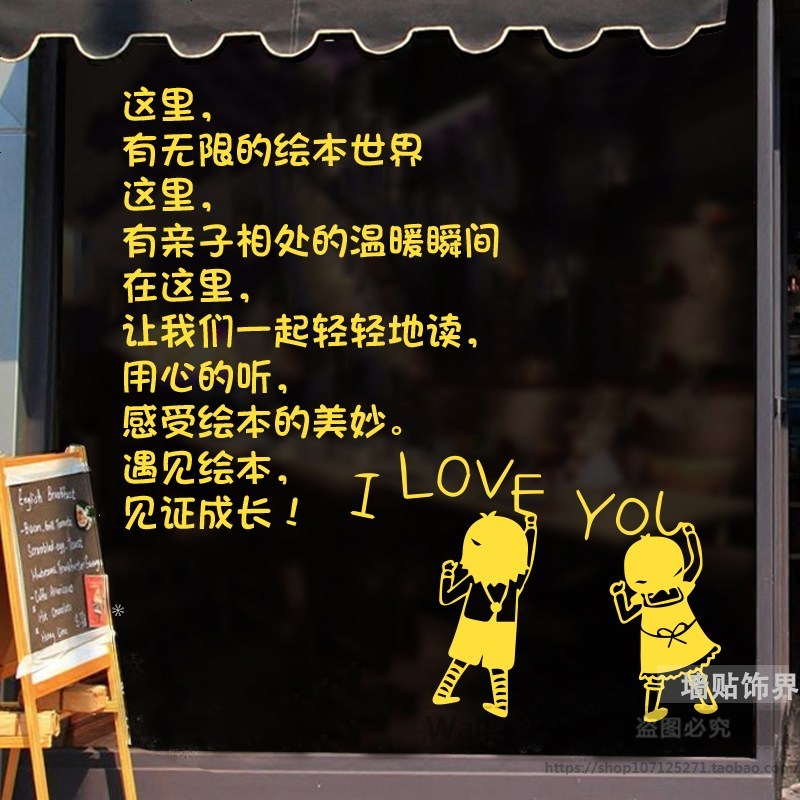 这里，
有无限的绘本世界
这里，
有亲子相处的温暖瞬间
在这里，
让我们一起轻轻地读，
用心的听，
感受绘本的美妙。
遇见绘本，
见证成长！
I LOVE YOU
English Breakfast
墙贴饰界
盗图必究
https://shop107125271.taobao.com